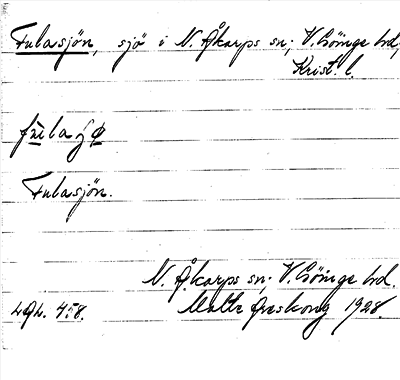 Fulasjön, sjö i N. Åkarps sn; V. Göinge hd,
Krist. l.
Fulasjön.
N. Åkarps sn; V. Göinge hd.
Malte Areskoug 1928.